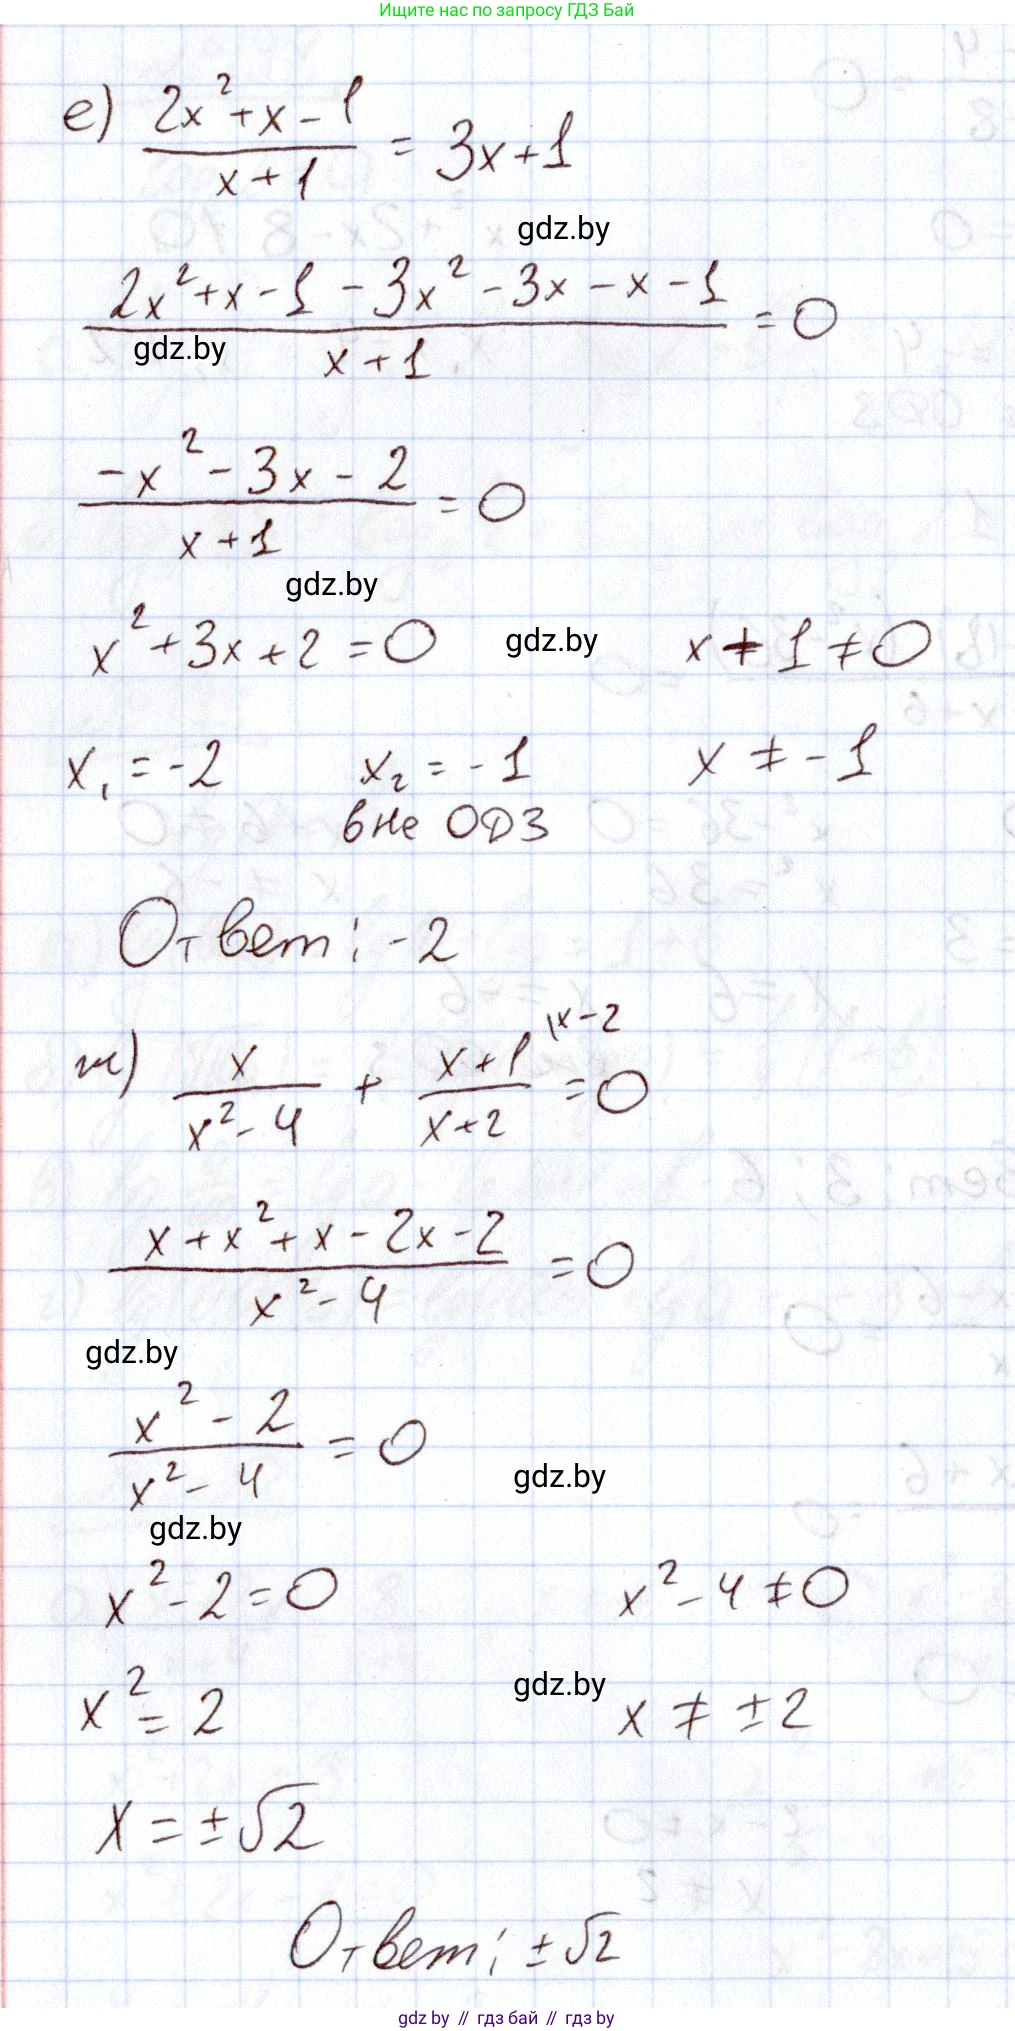 Ищите нас по запросу ГДЗ Бай
е) (2x²+x-1)/(x+1) = 3x+1
gdz.by
(2x²+x-1-3x²-3x-x-1)/(x+1) = 0
gdz.by
(-x²-3x-2)/(x+1) = 0
gdz.by
x²+3x+2=0 gdz.by x+1≠0
x₁=-2 x₂=-1 x≠-1
вне ОДЗ
Ответ: -2
ж) x/(x²-4) + (x+1)/(x+2) \x-2 = 0
(x+x²+x-2x-2)/(x²-4) = 0
gdz.by
(x²-2)/(x²-4) = 0
gdz.by
gdz.by
x²-2=0 x²-4≠0
gdz.by
x²=2 x≠±2
x=±√2
Ответ: ±√2
gdz by // гдз бай // гдз by